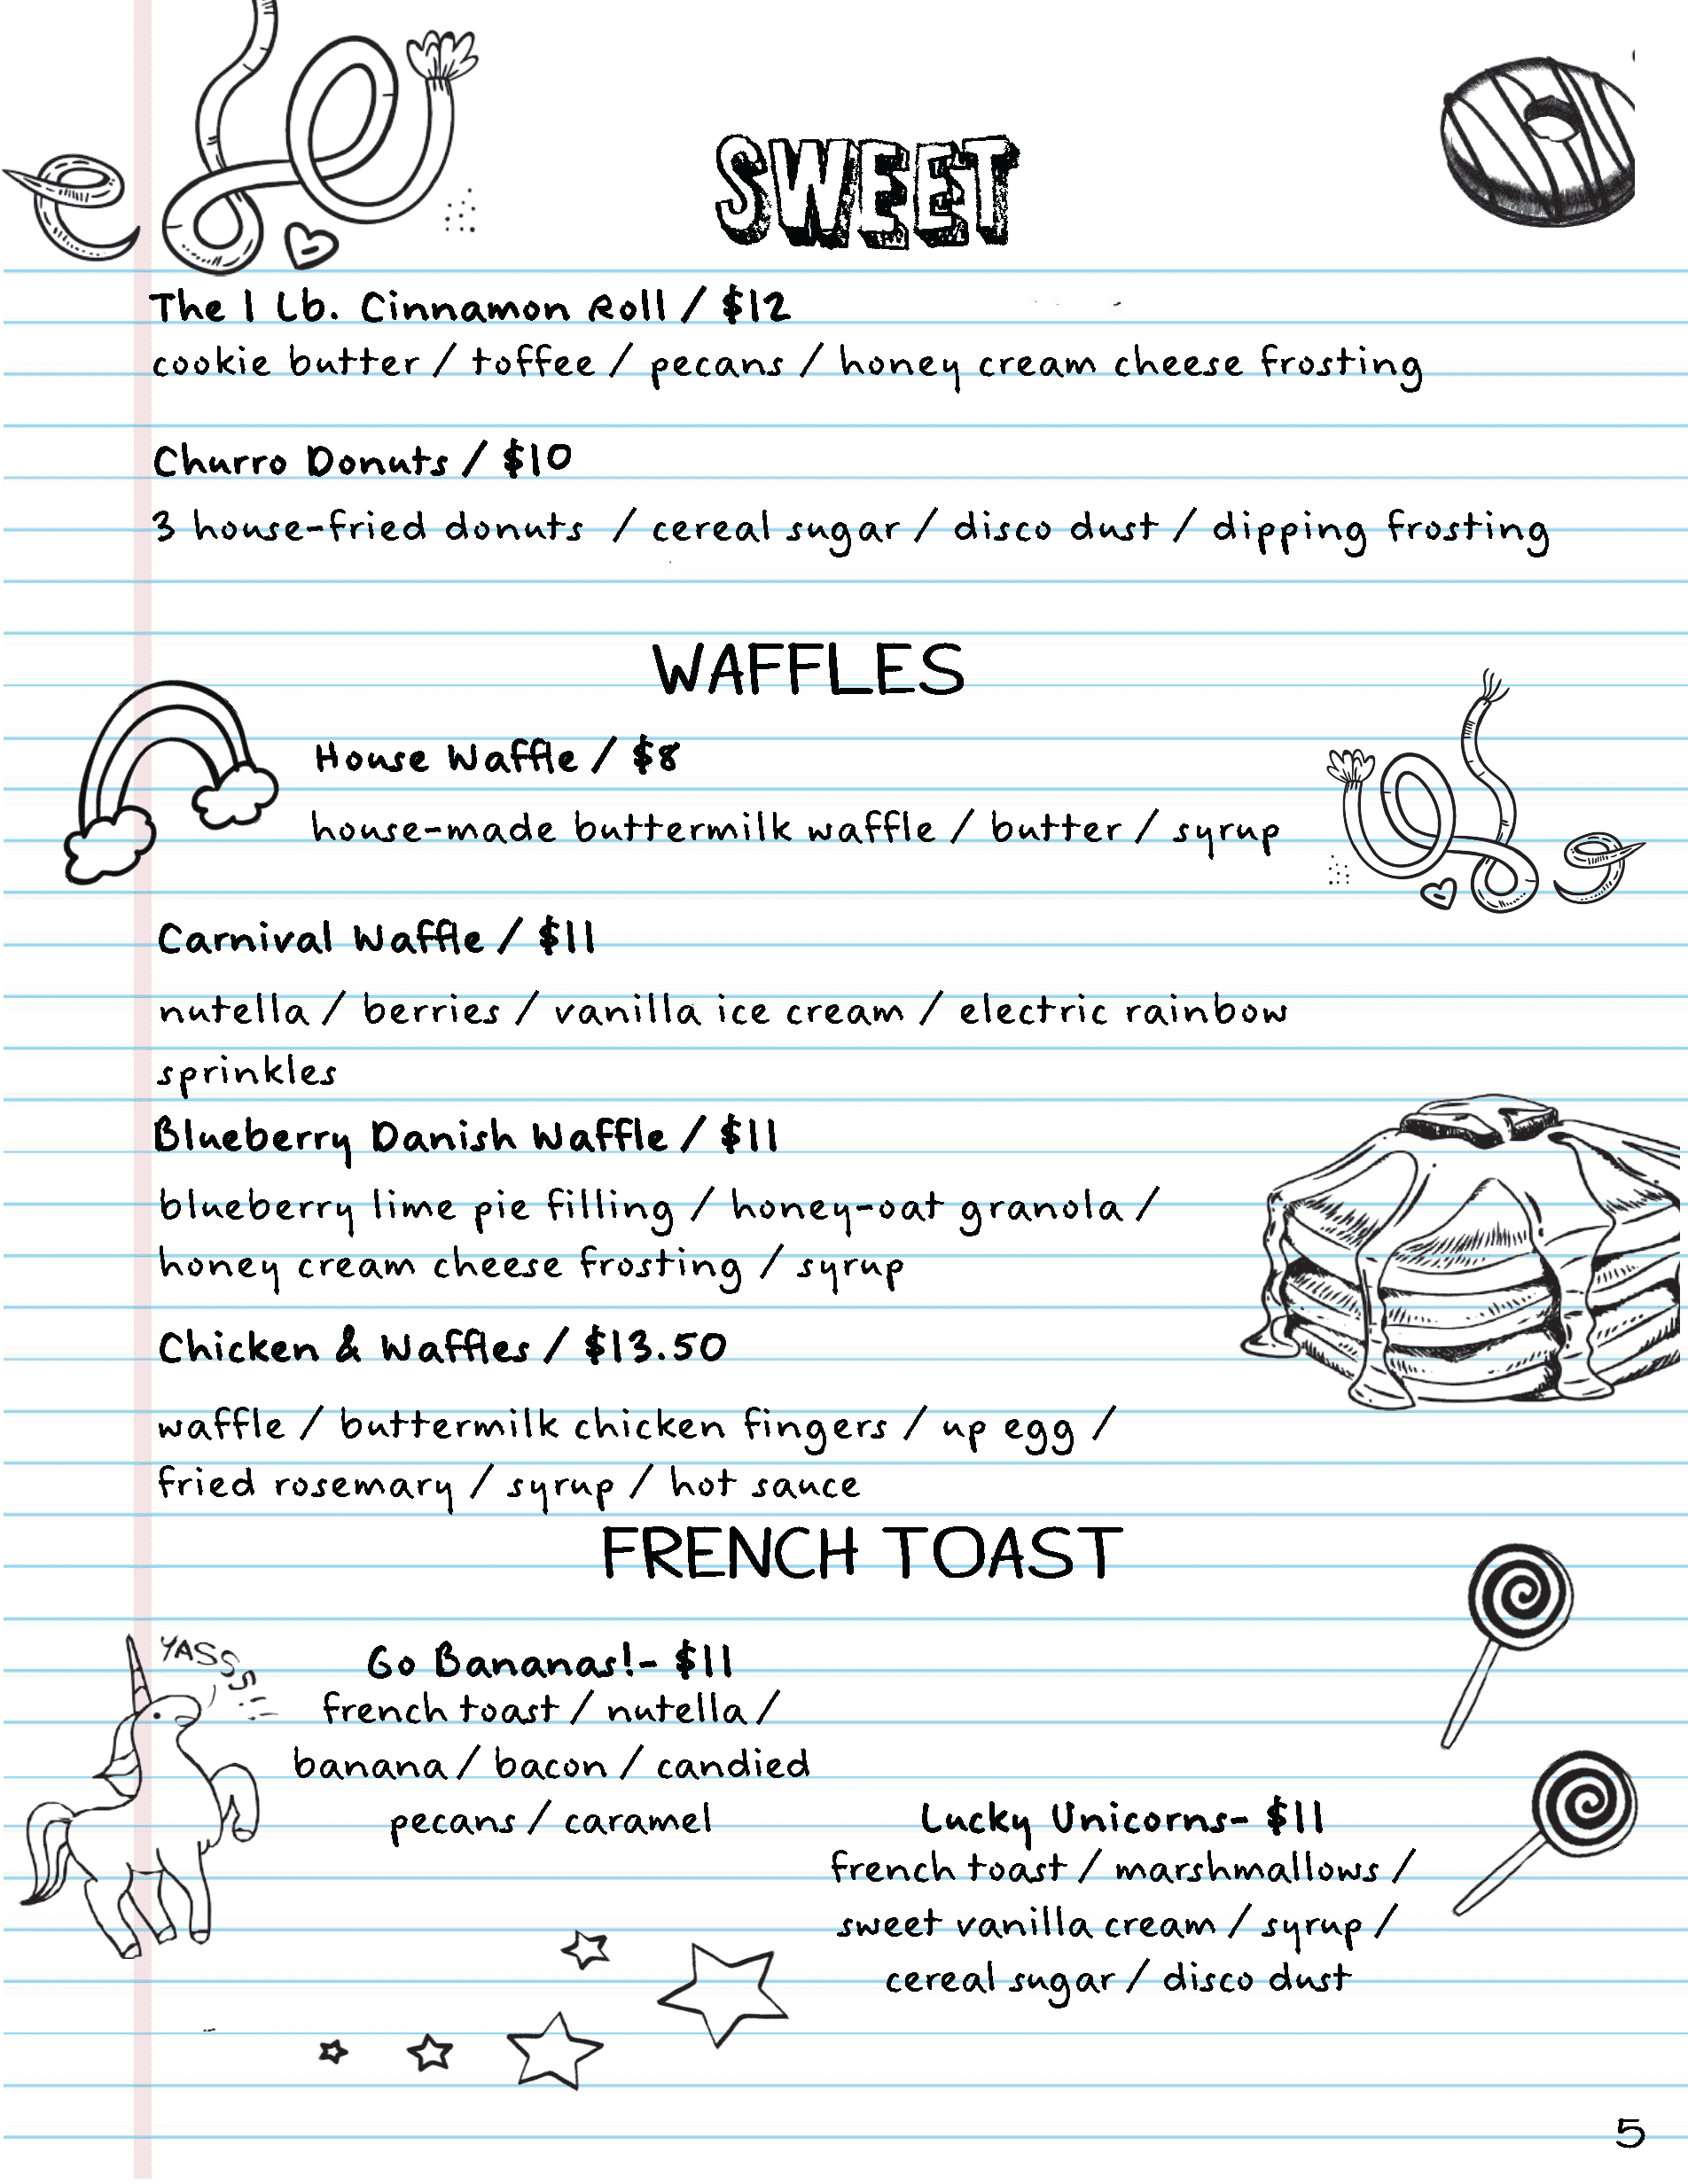 SWEET
The 1 Lb. Cinnamon Roll / $12
cookie butter / toffee / pecans / honey cream cheese frosting
Churro Donuts / $10
3 house-fried donuts / cereal sugar / disco dust / dipping frosting
WAFFLES
House Waffle / $8
house-made buttermilk waffle / butter / syrup
Carnival Waffle / $11
nutella / berries / vanilla ice cream / electric rainbow
sprinkles
Blueberry Danish Waffle / $11
blueberry lime pie filling / honey-oat granola /
honey cream cheese frosting / syrup
Chicken & Waffles / $13.50
waffle / buttermilk chicken fingers / up egg /
fried rosemary / syrup / hot sauce
FRENCH TOAST
YASSSS!!
Go Bananas!- $11
french toast / nutella /
banana / bacon / candied
pecans / caramel
Lucky Unicorns- $11
french toast / marshmallows /
sweet vanilla cream / syrup /
cereal sugar / disco dust
5